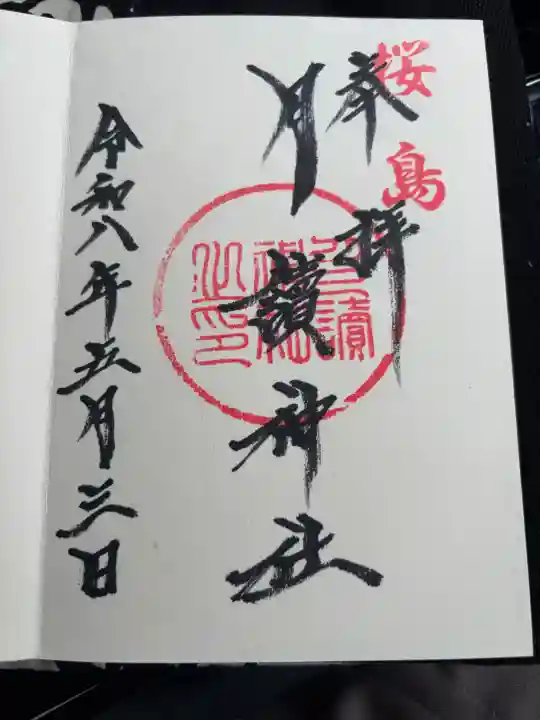 桜島
奉拝
月讀神社
月讀神社之印
令和八年五月三日